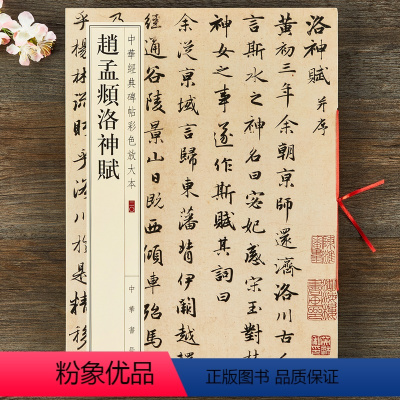 洛神賦 并序
黃初三年余朝京師還濟洛川古
言斯水之神名曰宓妃感宋玉對
神女之事遂作斯賦其詞曰
余從京域言歸東藩背伊闕越
經通谷陵景山日既西傾車殆馬
中華經典碑帖彩色放大本
趙孟頫洛神賦
中華書局
乃
乎楊林流眄乎洛川於是精移
粉象优品